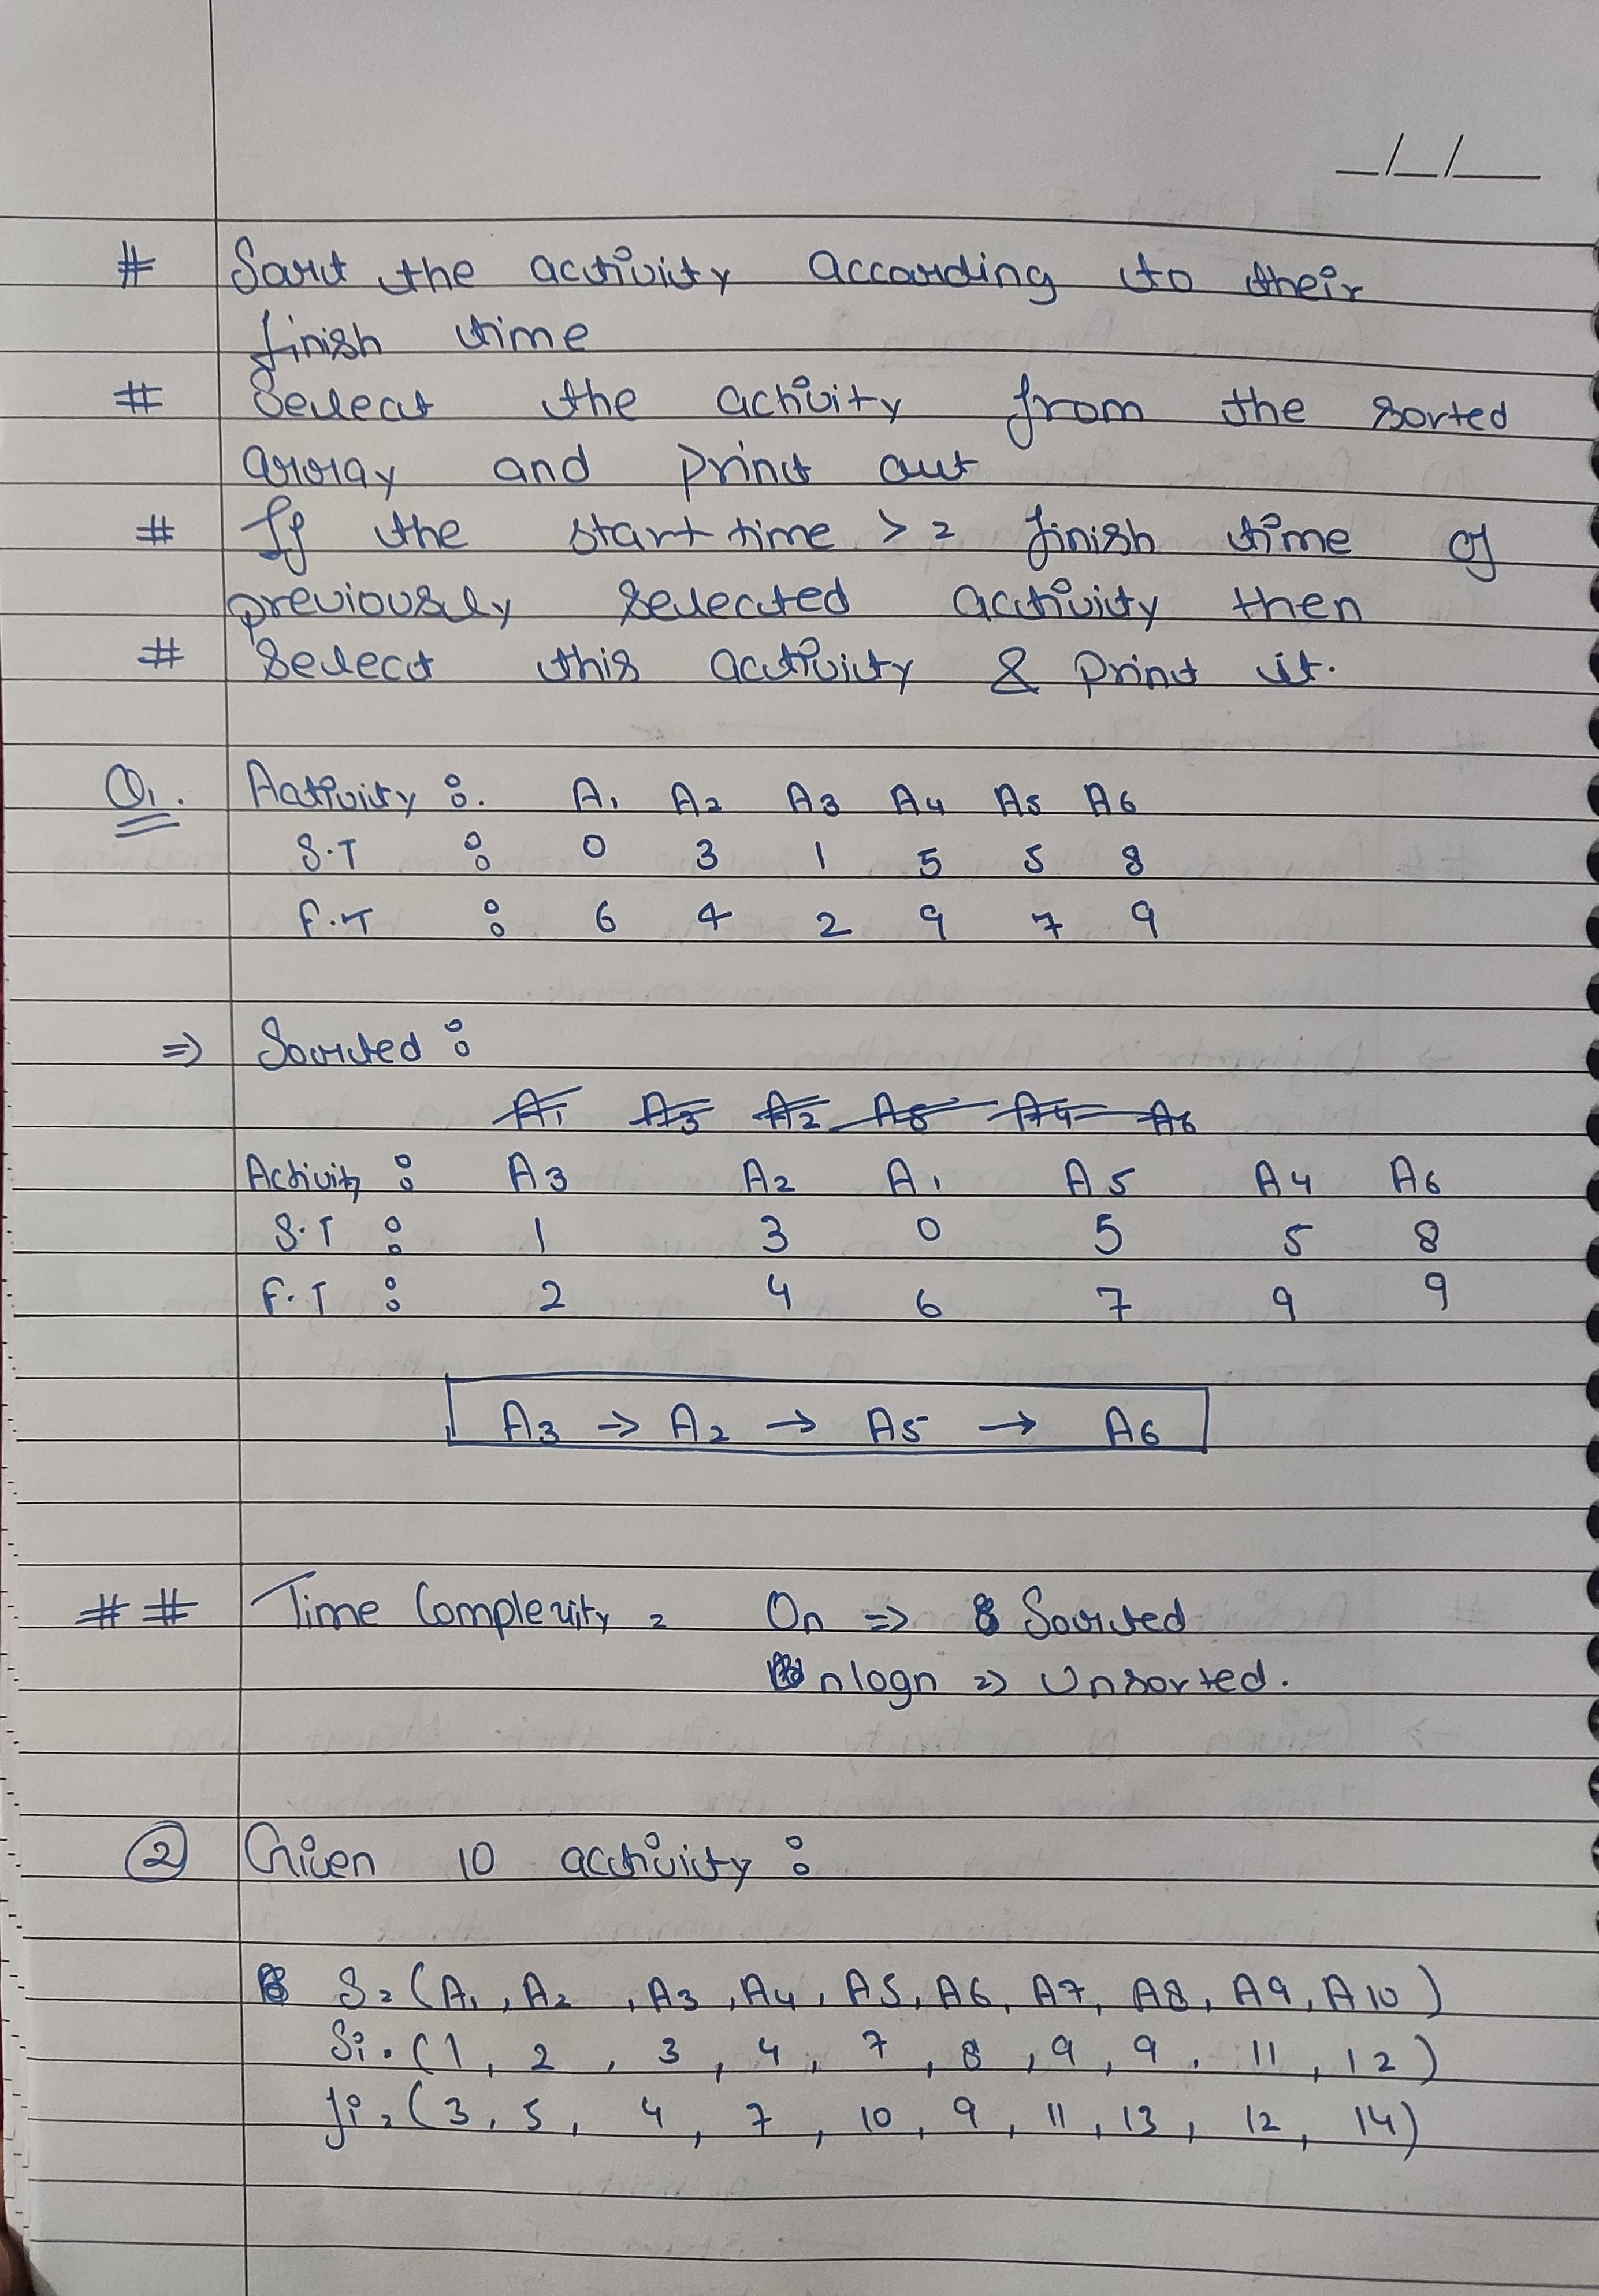 _/_/__
# Sort the activity according to their
finish time
# Select the activity from the sorted
array and print out
# If the start time >= finish time of
previously selected activity then
# Select this activity & print it.
Q1. Activity : A1 A2 A3 A4 A5 A6
S.T : 0 3 1 5 5 8
F.T : 6 4 2 9 7 9
=> Sorted :
A1 A3 A2 A5 A4 A6
Activity : A3 A2 A1 A5 A4 A6
S.T : 1 3 0 5 5 8
F.T : 2 4 6 7 9 9
A3 → A2 → A5 → A6
## Time Complexity = On => Sorted
nlogn => Unsorted.
② Given 10 activity :
S = (A1, A2, A3, A4, A5, A6, A7, A8, A9, A10)
Si = (1, 2, 3, 4, 7, 8, 9, 9, 11, 12)
fi = (3, 5, 4, 7, 10, 9, 11, 13, 12, 14)